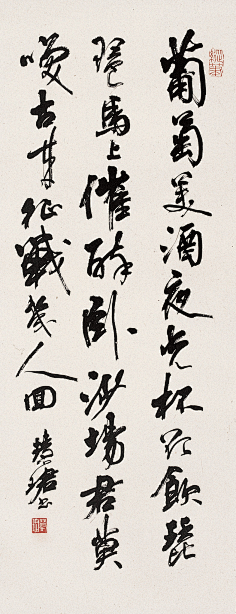 葡萄美酒夜光杯欲飲琵
琶馬上催醉臥沙場君莫
咲古来征戰幾人回